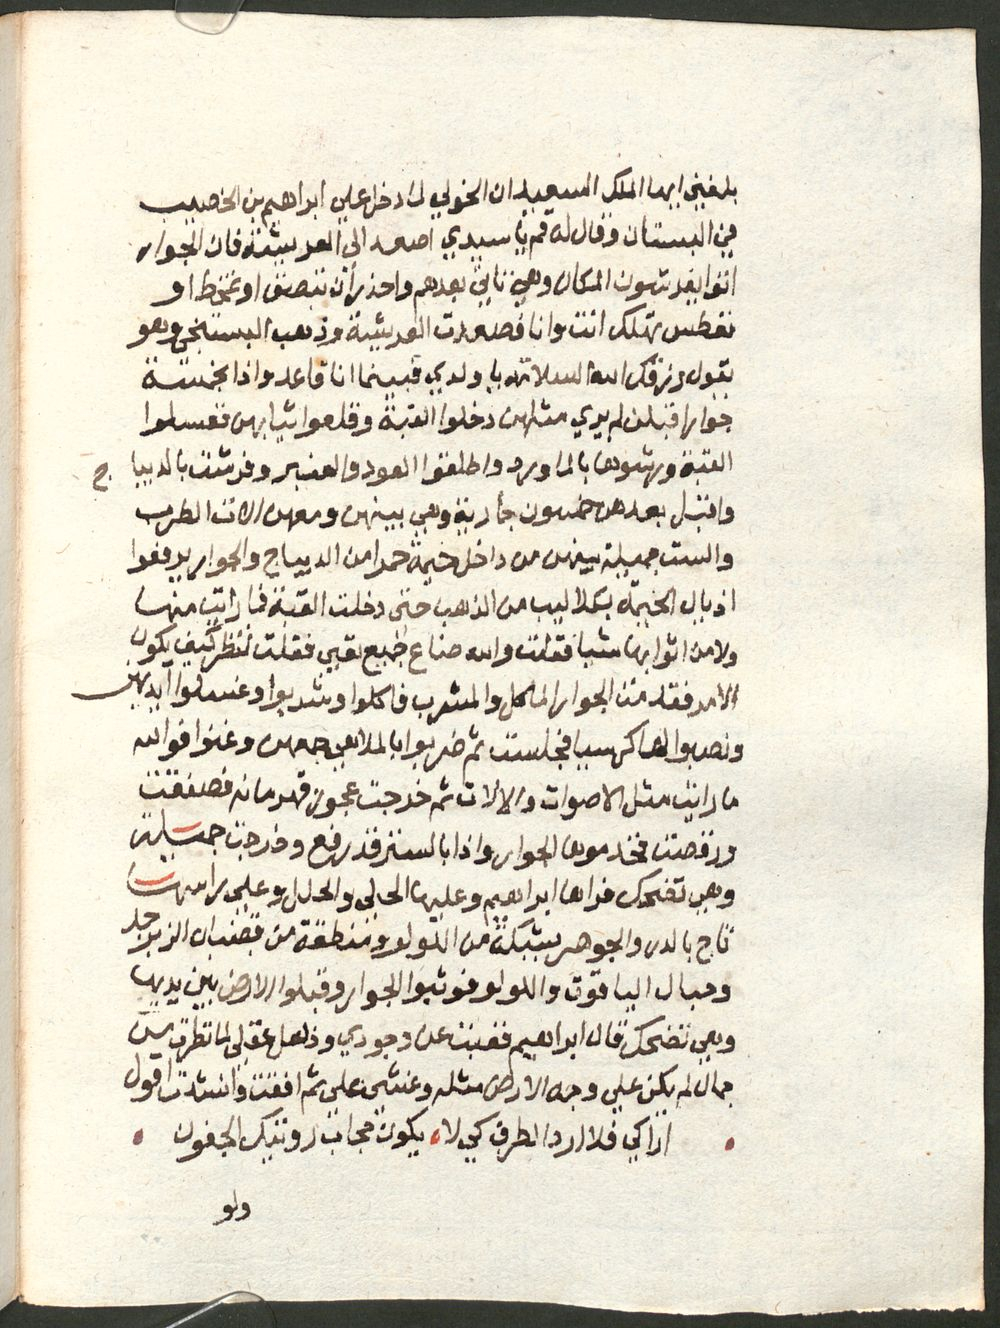 بلغني ايها الملك السعيد ان الخولي لما دخل علي ابراهيم بن الخصيب
في البستان وقال له قم يا سيدي اصعد الى العريشة فان الجوار
اتوا يفرشون المكان وهي تاتي بعدهم واحذر أن تبصق او تمخط او
تعطس تهلك انت وانا فصعدت العريشة وذهب البستنجي وهو
يقول رزقك الله السلامة يا ولدي فبينما انا قاعد واذا بخمسة
جوار اقبلن لم يري مثلهن دخلوا القبة وقلعوا ثيابهن فغسلوا
القبة ورشوها بالماورد واطلقوا العود والعنبر وفرشت بالديبا ج
واقبل بعدهن خمسون جارية وهي بينهن ومعهن الات الطرب
والست جميلة بينهن من داخل خيمة حمرا من الديباج والجوار يرفعوا
اذيال الخيمة بكلاليب من الذهب حتى دخلت القبة فما رايت منها
ولا من اثوابها شيا فقلت والله ضاع جميع تعبي فقلت ننظر كيف يكون
الامر فقدمن الجوار الماكل والمشرب فاكلوا وشربوا وغسلوا أيديهن
ونصبوا لها كرسيا فجلست ثم ضربوا بالملاهي جمعهن وغنوا فوالله
ما رايت مثل الاصوات والالات ثم خرجت عجوز قهرمانه فصفقت
ورقصت فخدموها الجوار واذا بالستر قد رفع وخرجت جميلة
وهي تضحك فراها ابراهيم وعليها الحلى والحلل وعلى راسها
تاج بالدر والجوهر بشبكة من اللولو ومنطقة من قضبان الزبرجد
وحبال الياقوت واللولو فوثبوا الجوار وقبلوا الارض بين يديها
وهي تضحك قال ابراهيم فغبت عن وجودي وذهل عقلى لما نظرت من
جمال لم يكن علي وجه الارض مثله وغشي علي ثم افقت وانشدت اقول
اراكي فلا ارد الطرف كي لا يكون حجاب رويتك الجفون
ولو